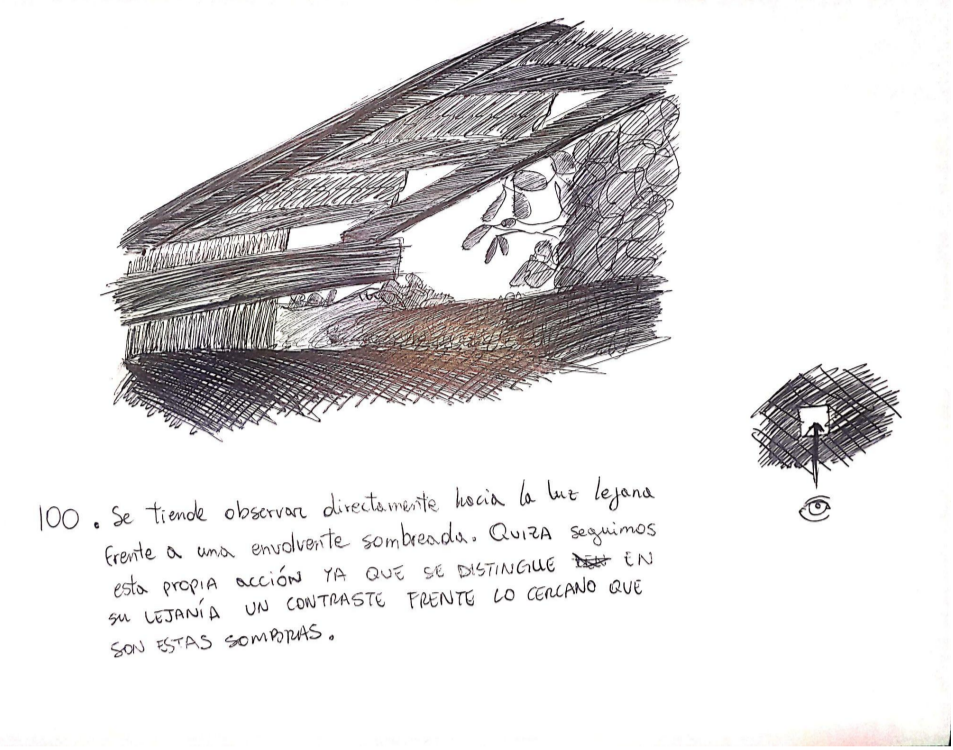 100. Se tiende observar directamente hacia la luz lejana
frente a una envolvente sombreada. QUIZA seguimos
esta propia acción YA QUE SE DISTINGUE EN
su LEJANÍA UN CONTRASTE FRENTE LO CERCANO QUE
SON ESTAS SOMBRAS.